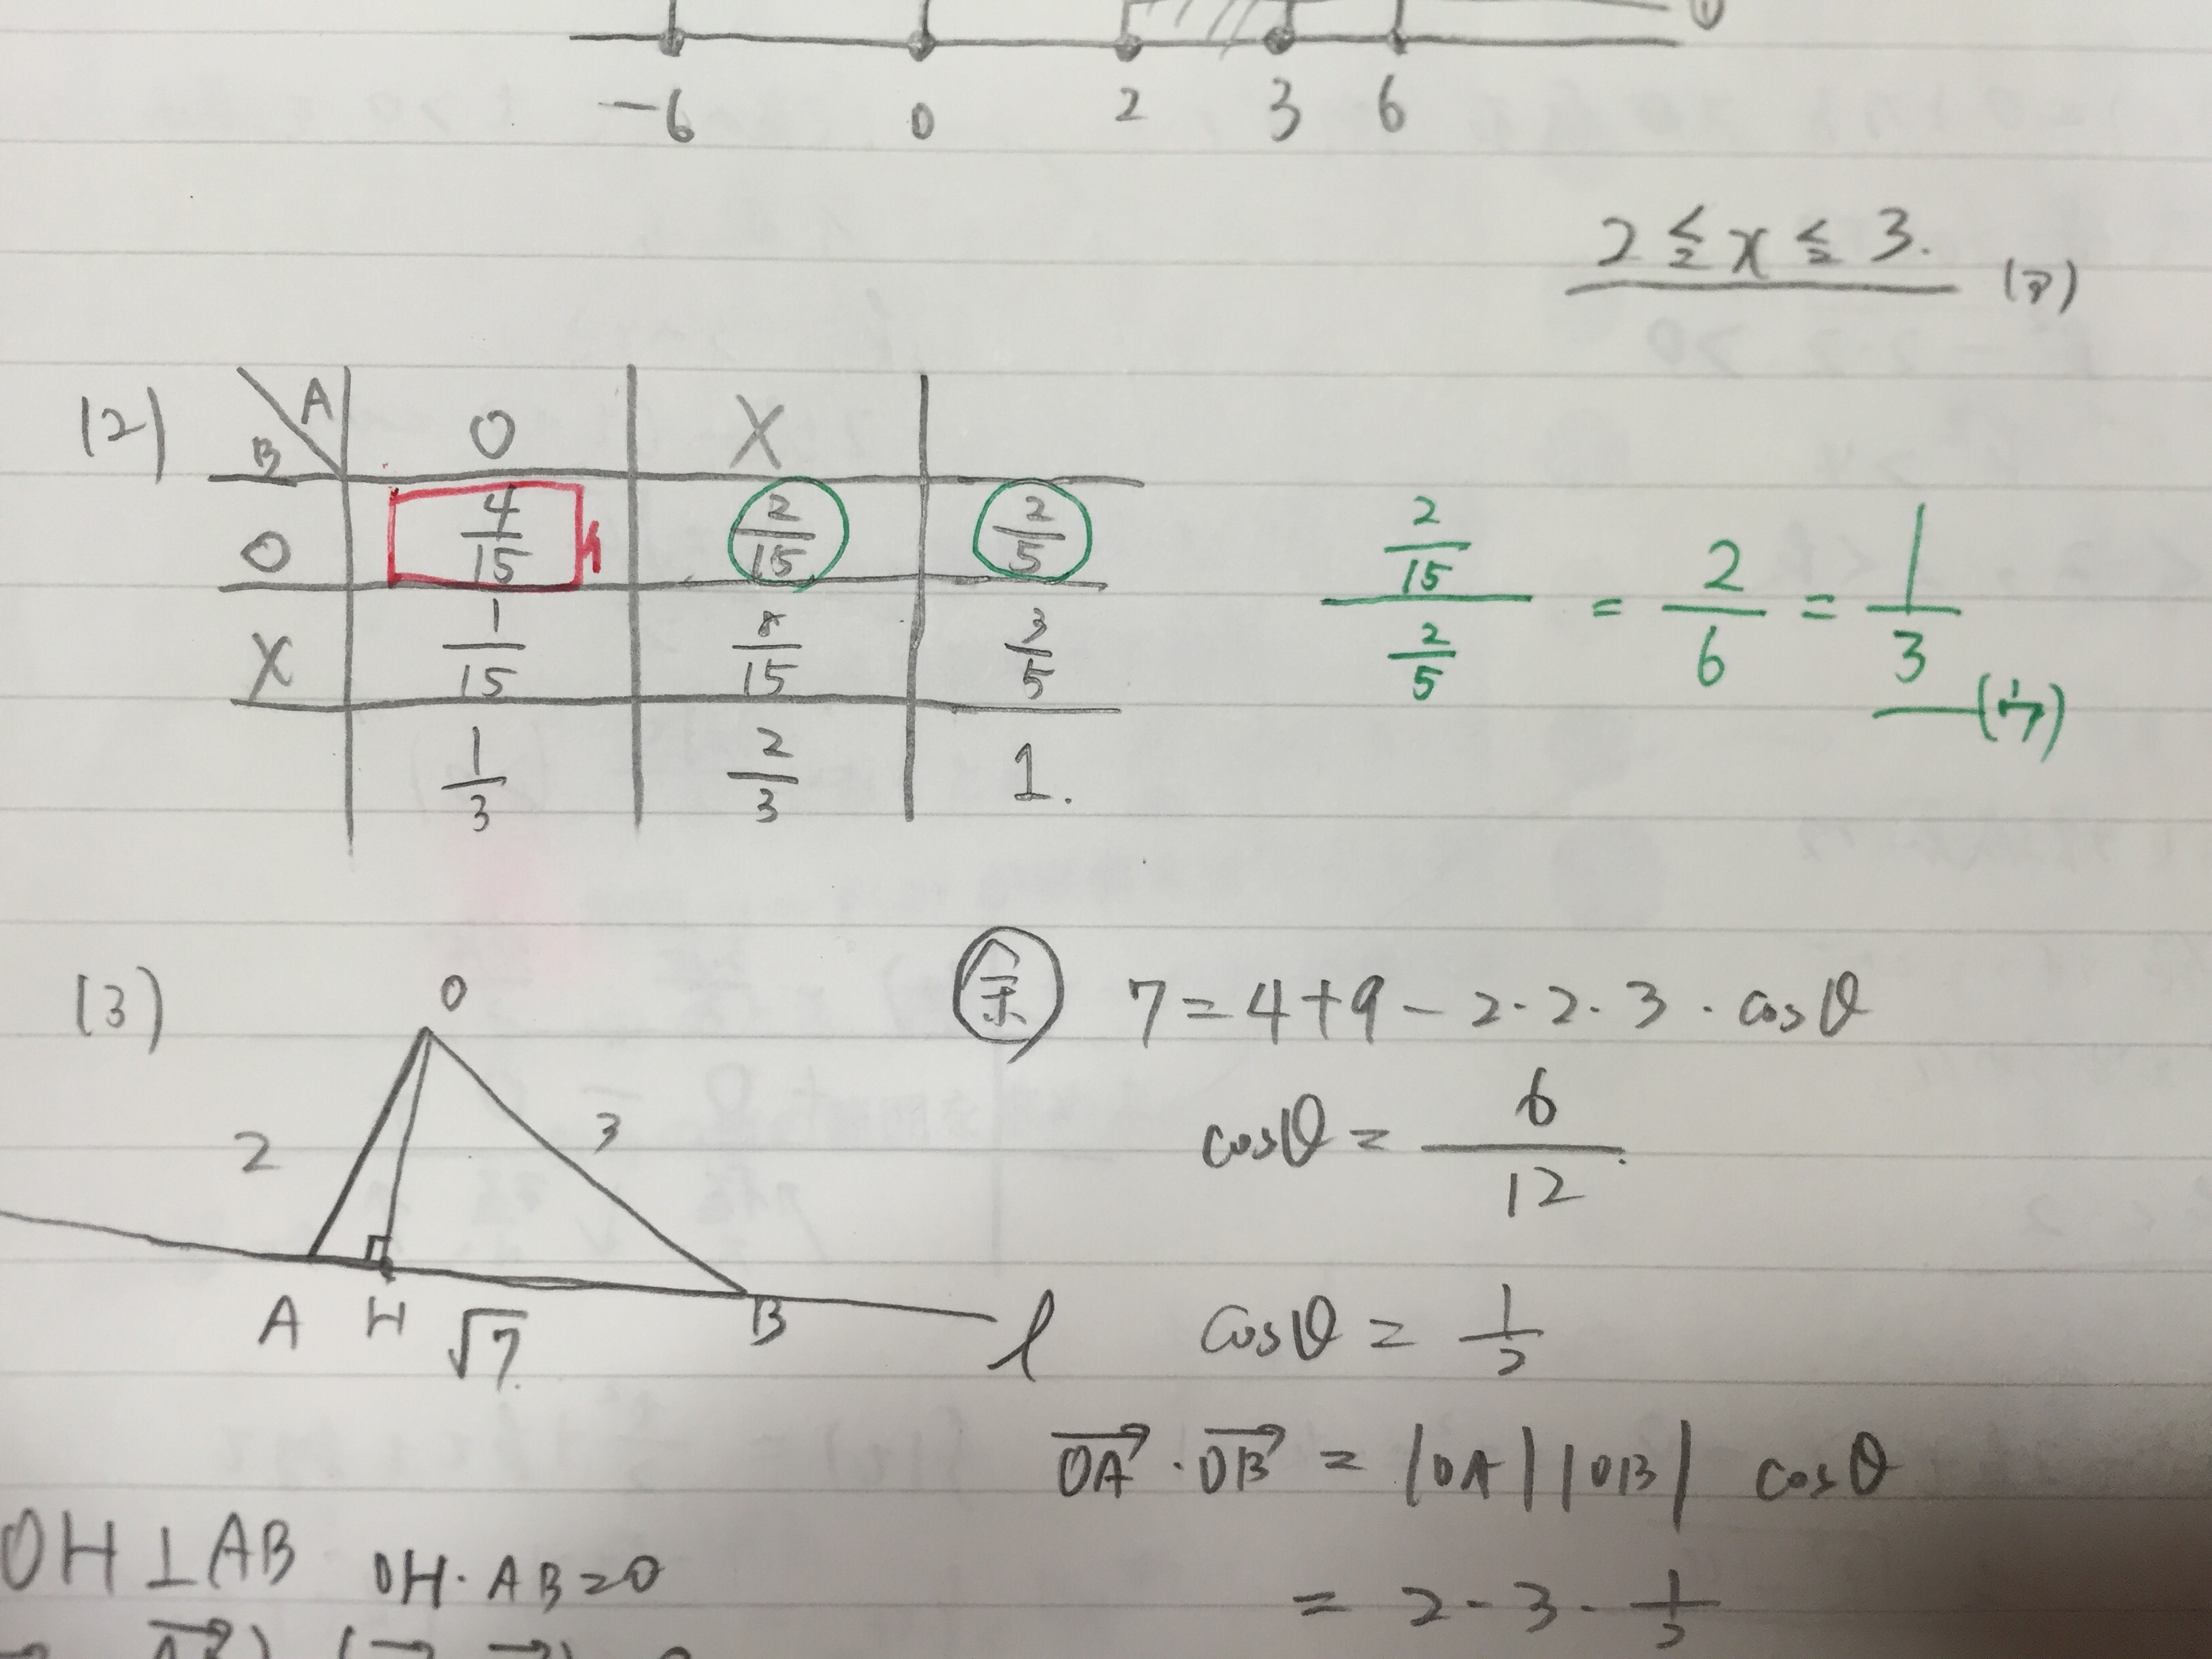 -6 0 2 3 6
2 ≦ x ≦ 3.
(2) A B O X
O 4/15 2/15 2/5
X 1/15 8/15 3/5
1/3 2/3 1.
(2/15)/(2/5) = 2/6 = 1/3
(3) O
2 3
A H √7 B l
余 7 = 4 + 9 - 2・2・3・cosθ
cosθ = 6/12
cosθ = 1/2
OA→・OB→ = |OA||OB| cosθ
= 2・3・1/2
OH⊥AB OH・AB=0